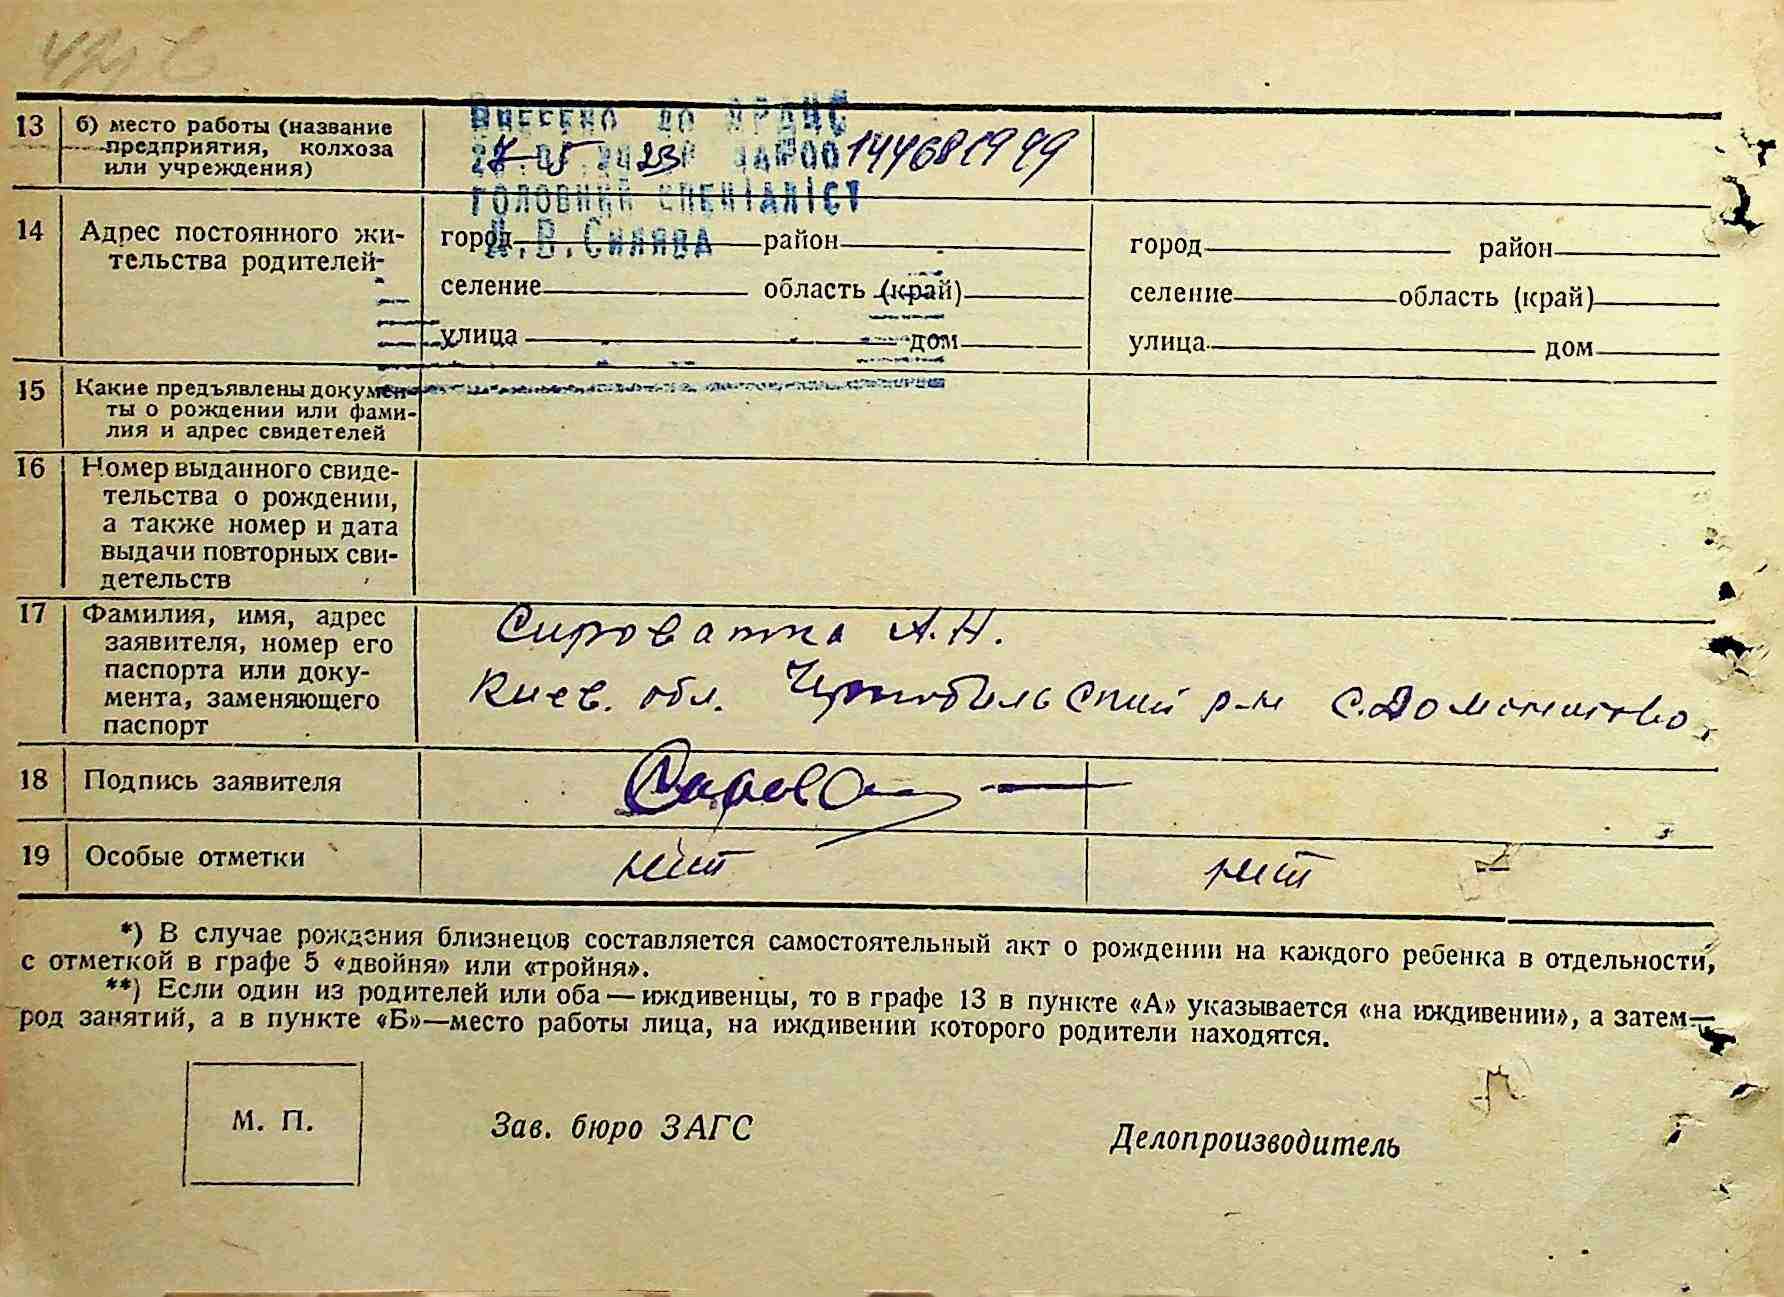 13 б) место работы (название
предприятия, колхоза
или учреждения)
Внесено до ДРАЦС
27.05.2023р ЗАП00144681999
ГОЛОВНИЙ СПЕЦІАЛІСТ
14 Адрес постоянного жи-
тельства родителей
город район
селение область (край)
улица дом
город район
селение область (край)
улица дом
15 Какие предъявлены докумен-
ты о рождении или фами-
лия и адрес свидетелей
16 Номер выданного свиде-
тельства о рождении,
а также номер и дата
выдачи повторных сви-
детельств
17 Фамилия, имя, адрес
заявителя, номер его
паспорта или доку-
мента, заменяющего
паспорт
Сироватка А.Н.
Киев. обл. Чернобильский р-н с.
18 Подпись заявителя
19 Особые отметки
нет нет
*) В случае рождения близнецов составляется самостоятельный акт о рождении на каждого ребенка в отдельности,
с отметкой в графе 5 «двойня» или «тройня».
**) Если один из родителей или оба — иждивенцы, то в графе 13 в пункте «А» указывается «на иждивении», а затем—
род занятий, а в пункте «Б»—место работы лица, на иждивении которого родители находятся.
М. П. Зав. бюро ЗАГС Делопроизводитель